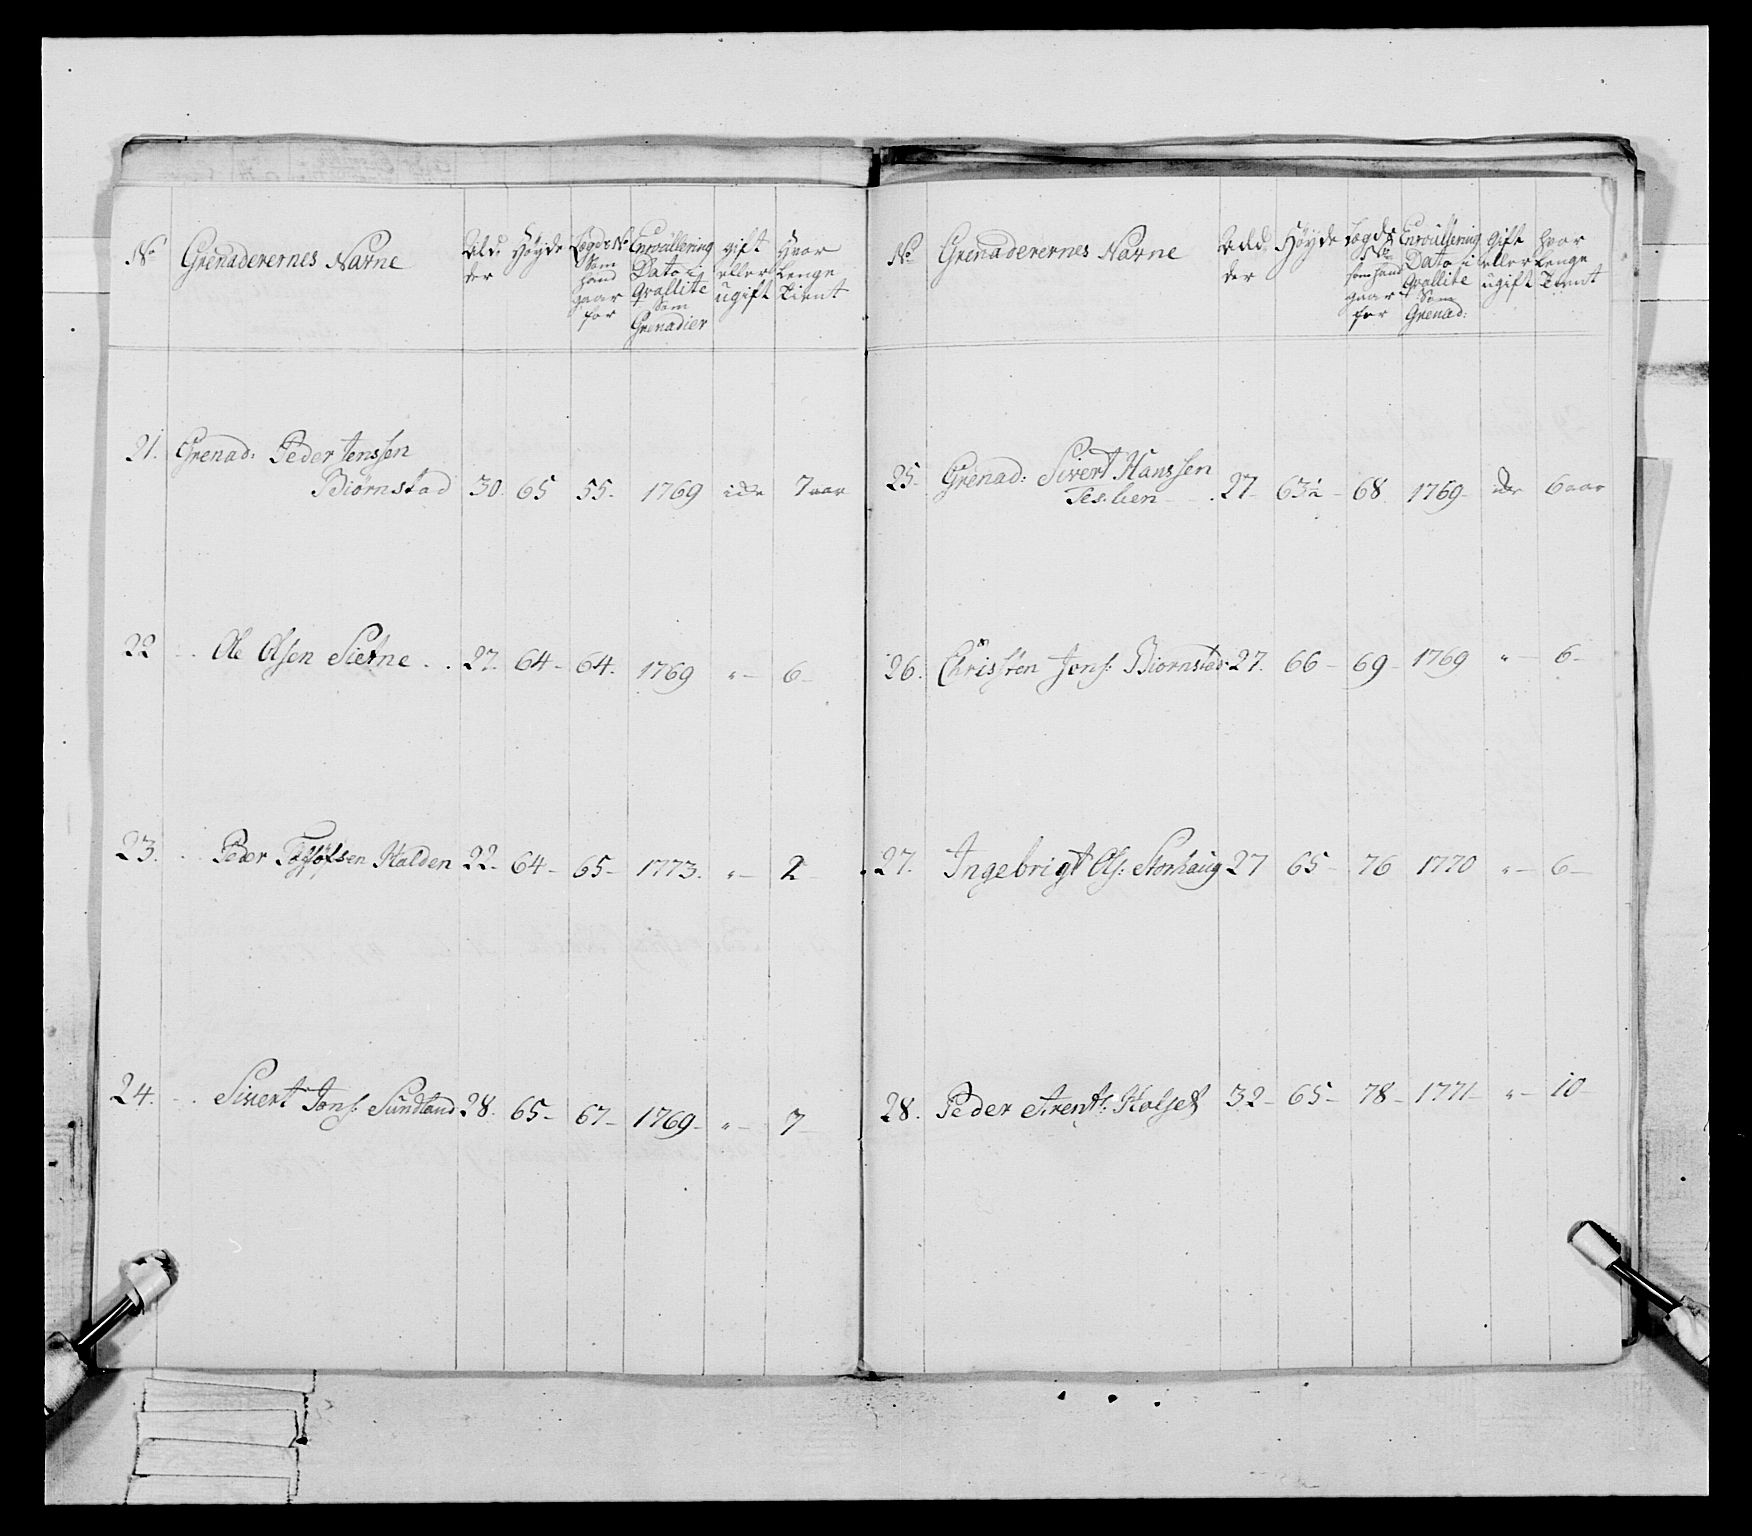 No Grenaderernes Navne Alder Høyde Lægds No Som hand gaar for Enroullering Dato i Qvallite Som Grenadier gift eller ugift Hvor Lenge Tient
21. Grenad: Peder Jenssen
Biørnstad 30. 65 55. 1769 ide 7 aar
22 Ole Olsen Sietne 27. 64 64. 1769 " 6
23. Peder Halden 22. 64 65 1773. " 2
24. Sivert Jons: Sundland 28. 65 67 1769 " 7
No Grenaderernes Navne Alder Høyde Lægds No som hand gaar for Enroullering Dato i Qvallite Som Grenad: Gift eller ugift hvor Lenge Tient
25. Grenad: Sivert Hanssen
Teslien 27 63½ 68 1769 ide 6 aar
26. Christen Jons: Biornstad 27. 66 69 1769 " 6
27. Ingebrigt Ols: Storhaug 27 65 76 1770 " 6
28. Peder Arents: Halset 32 65 78 1771 " 10